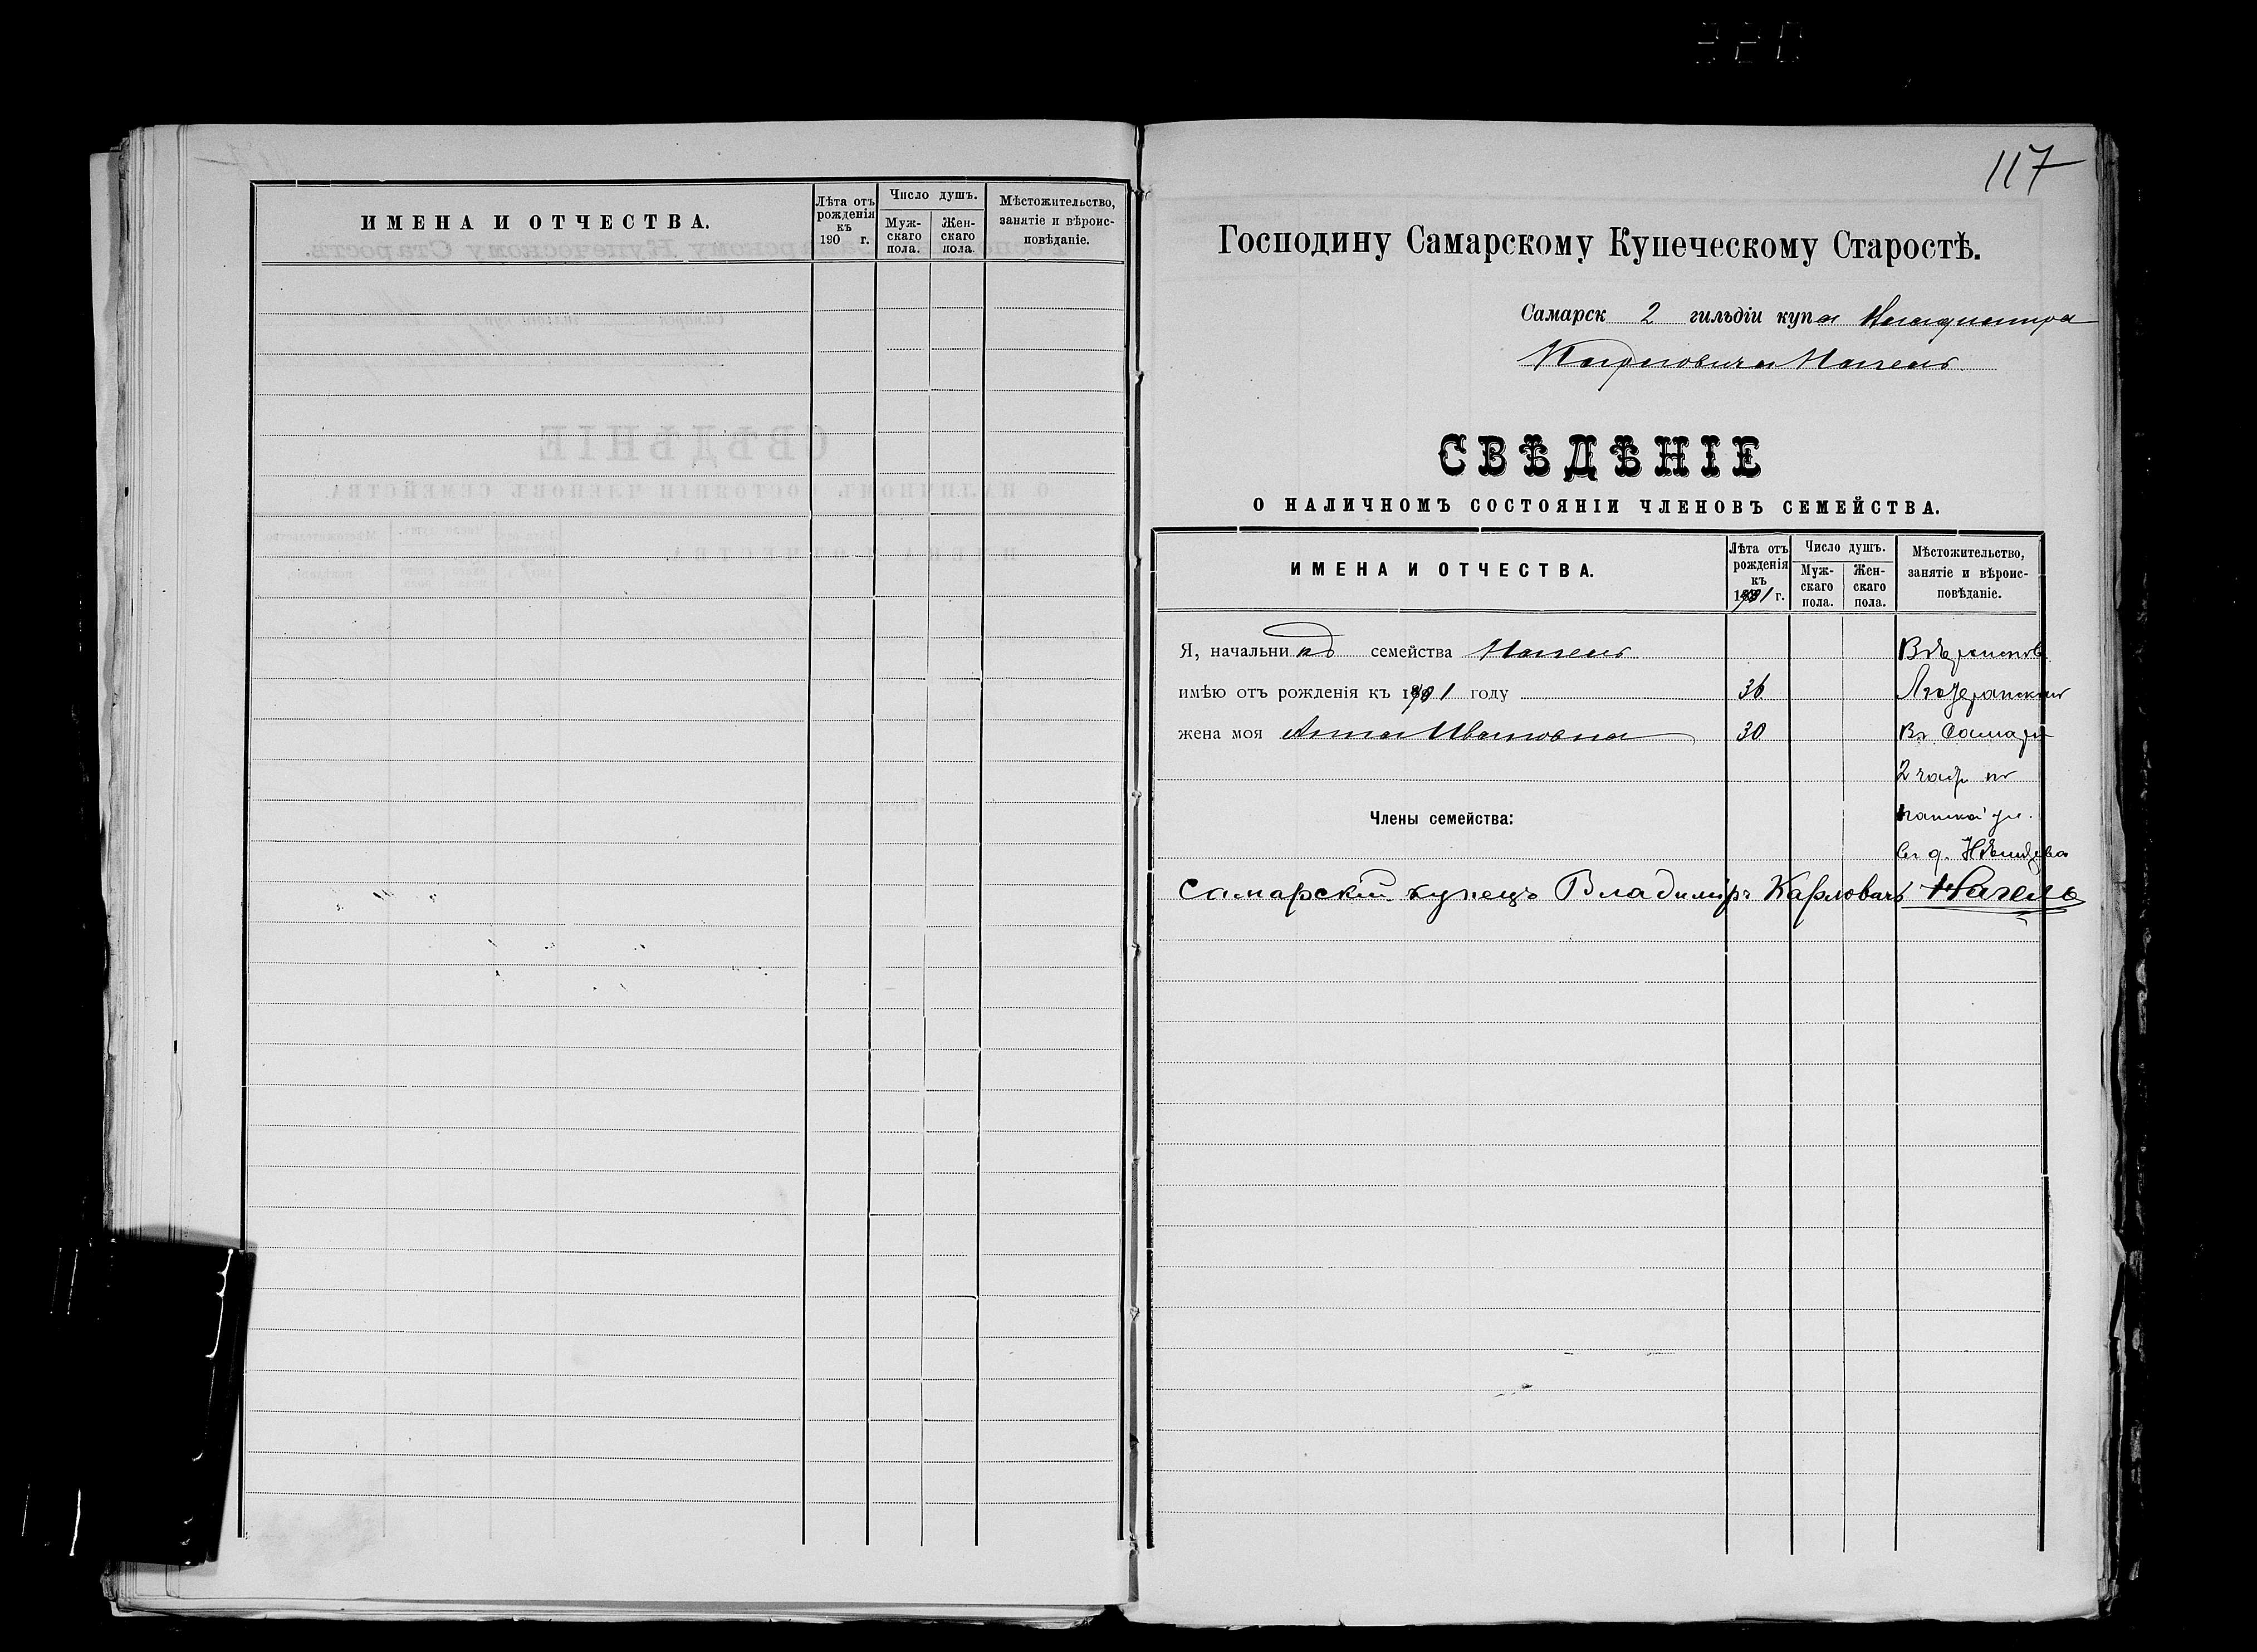 ИМЕНА И ОТЧЕСТВА.
Лѣта отъ рожденія къ 190 г.
Число душъ.
Муж-скаго пола.
Жен-скаго пола.
Мѣстожительство, занятіе и вѣроис-повѣданіе.
117
Господину Самарскому Купеческому Старостѣ.
Самарск 2 гильдіи купа
Карловича Нагель
СВѢДѢНІЕ
О НАЛИЧНОМЪ СОСТОЯНІИ ЧЛЕНОВЪ СЕМЕЙСТВА.
ИМЕНА И ОТЧЕСТВА.
Лѣта отъ рожденія къ 1901 г.
Число душъ.
Муж-скаго пола.
Жен-скаго пола.
Мѣстожительство, занятіе и вѣроис-повѣданіе.
Я, начальникъ семейства Нагель
имѣю отъ рожденія къ 1901 году 36
жена моя Анна Ивановна 30 Въ Самарѣ
2 части по
Члены семейства: ул.
въ д.
Самарскій купецъ Владиміръ Карловичъ Нагель